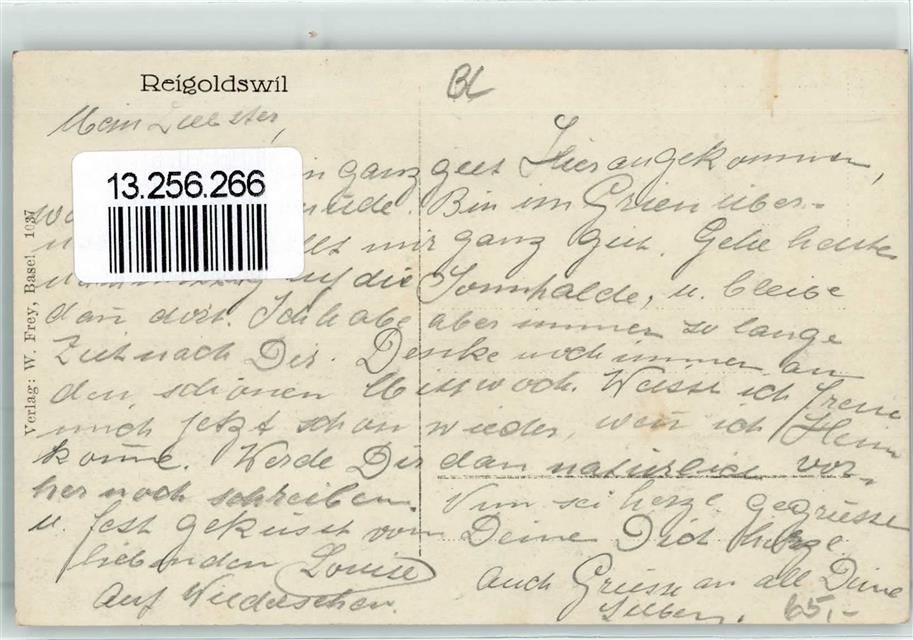 Reigoldswil
BL
Mein Liebster,
13.256.266
ganz gut Hier angekommen,
müde. Bin im Grien über-
mir ganz gut. Gehe heute
auf die Sonnhalde, u. bleibe
dañ dort. Ich habe aber immer so lange
Zeit nach Dir. Denke noch immer an
den schönen Mittwoch. Weisst ich freue
mich jetzt schon wieder, weñ ich Heim
kom̃e. Werde Dir dan natürlich vor-
her noch schreiben.
Nun sei herzl. gegrüsst
u. fest geküsst von Deine Dich herzl
liebenden Louise
Auf Wiedersehen.
auch Grüsse an all Deine
Lieben.
65,-
Verlag: W. Frey, Basel, 1037